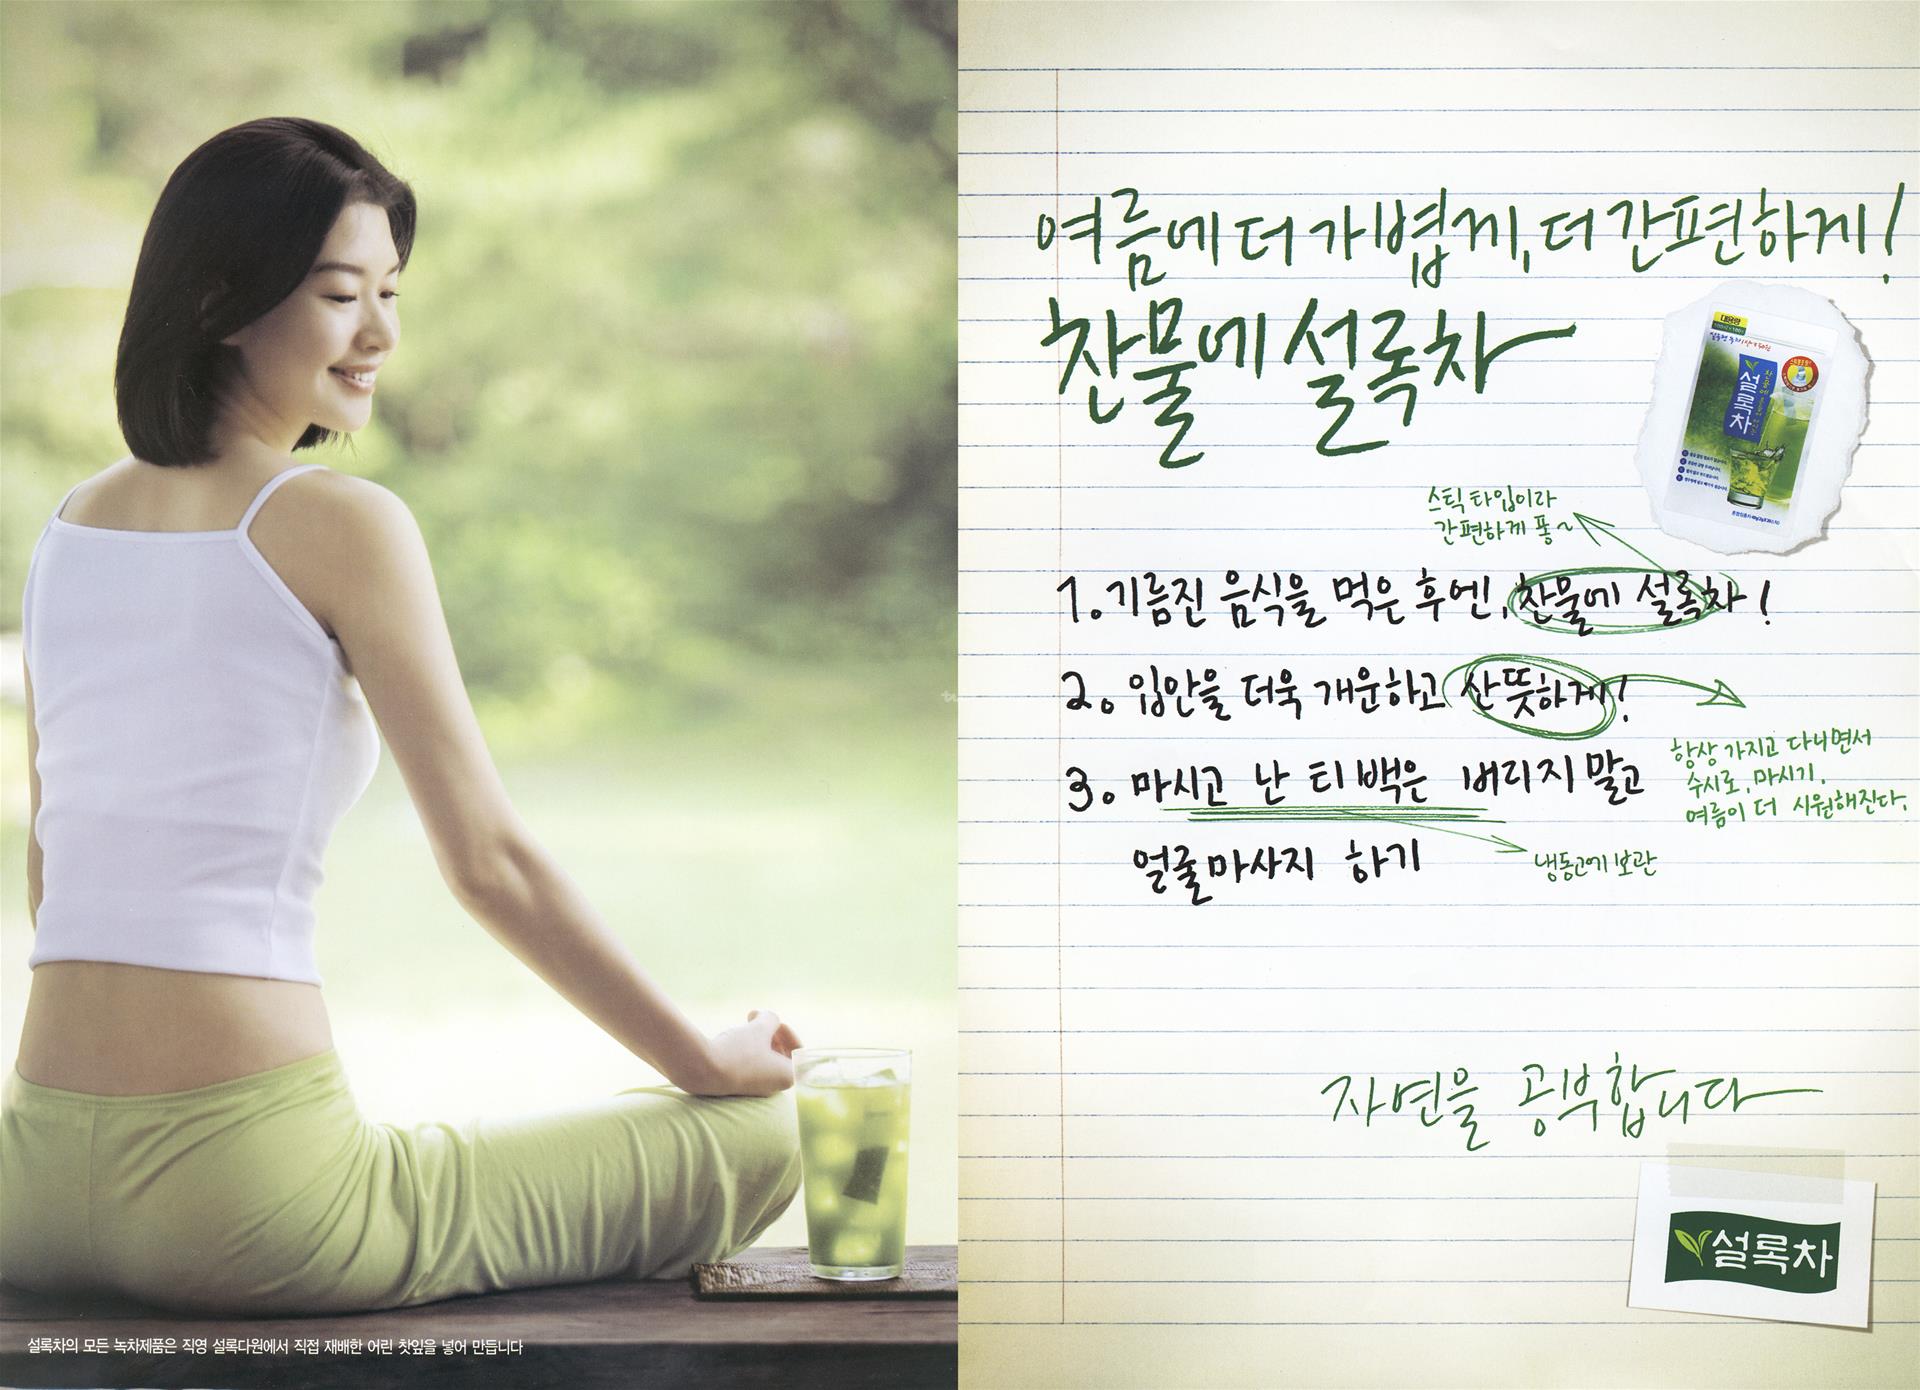 여름에 더 가볍게, 더 간편하게!
찬물에 설록차
대용량
설록차
스틱 타입이라
간편하게 퐁~
1. 기름진 음식을 먹은 후엔, 찬물에 설록차!
2. 입안을 더욱 개운하고 산뜻하게!
항상 가지고 다니면서
수시로, 마시기.
여름이 더 시원해진다.
3. 마시고 난 티백은 버리지 말고
얼굴마사지 하기
냉동고에 보관
자연을 공부합니다
설록차
설록차의 모든 녹차제품은 직영 설록다원에서 직접 재배한 어린 찻잎을 넣어 만듭니다